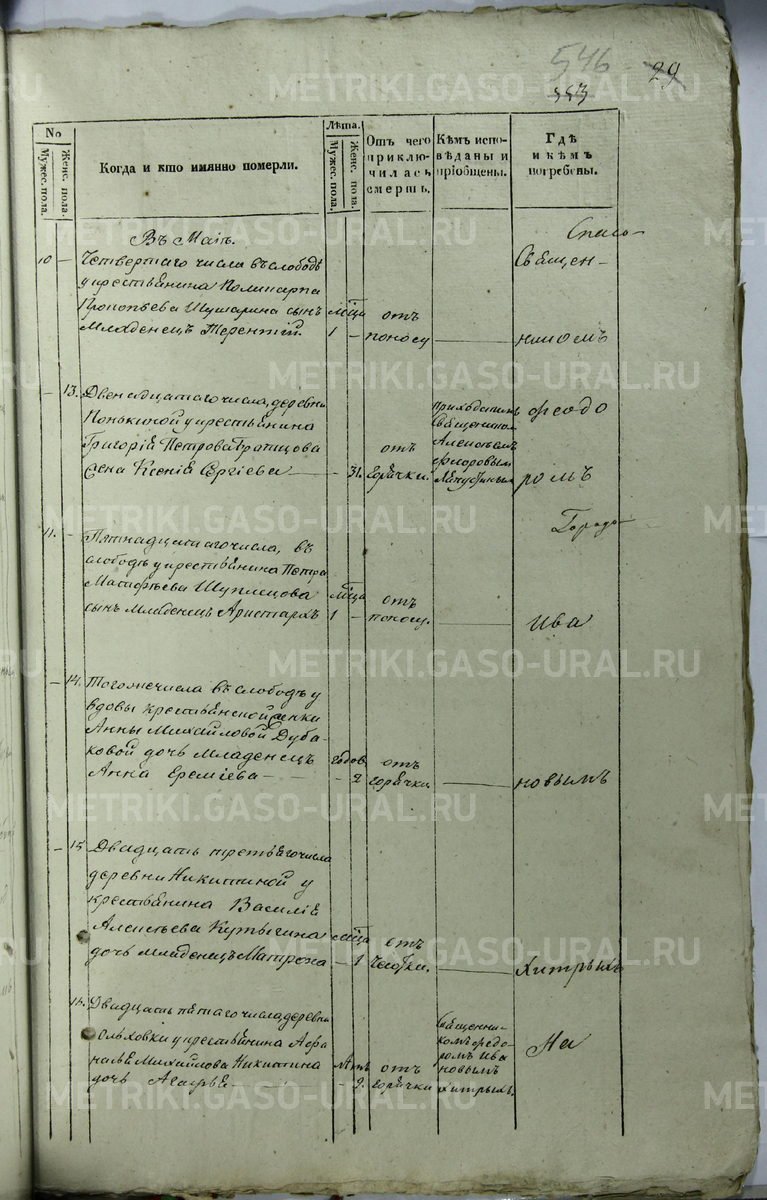 546
29
553
No
Мужес. пола.
Женс. пола.
Когда и кто имянно померли.
Лѣта.
Мужес. пола.
Женс. пола.
Отъ чего
приклю-
чилась
смерть.
Кѣмъ испо-
вѣданы и
пріобщены.
Гдѣ
и кѣмъ
погребены.
Въ Маіѣ.
10 –
Четвертаго числа въ слободѣ
у крестьянина Поликарпа
Прокопьева Шушарина сынъ
Младенецъ Терентій.
мѣсца
1 –
отъ
поносу
Священ-
никомъ
– 13.
Двенадцатаго числа, деревни
Понькиной у крестьянина
Григорія Петрова
жена Ксенія Сергіева
– 31.
отъ
горячки.
Священникомъ
Алексѣемъ
Флоровымъ
Феодо
ромъ
11. –
Пятнадцатаго числа, въ
слободѣ у крестьянина Петра
Матфѣева Шуплецова
сынъ Младенецъ Аристархъ
мѣсца
1 –
отъ
поносу.
Ива
– 14.
Того же числа въ слободѣ у
вдовы крестьянской женки
Анны Михайловой Дуба-
ковой дочь Младенецъ
Анна Еремѣева
годов.
– 2
отъ
горячки
новымъ
– 15
Двадцать третьяго числа
деревни Никитиной у
крестьянина Василія
Алексѣева Кутыгина
дочь младенецъ Матрона
мѣсца
– 1
отъ
Хитрыхъ
16.
Двадцать пятаго числа, деревни
Ольховки у крестьянина Афа
насья Михайлова Никитина
дочь Агафья
лѣтъ
– 2.
отъ
горячки
Священни-
комъ Федо-
ромъ Ива
новымъ
Хитрыхъ.
На
METRIKI.GASO-URAL.RU